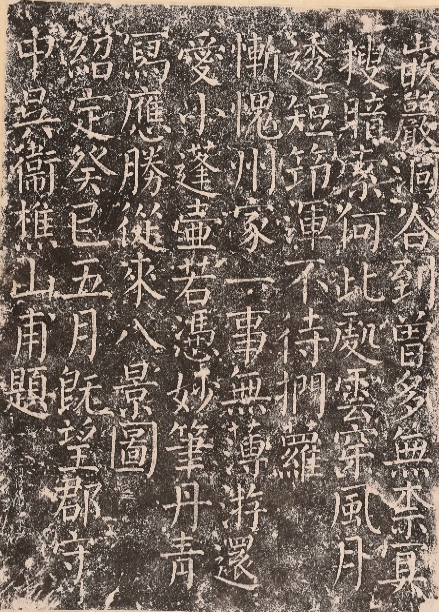 嵌巖洞谷到曾多無柰冥
搜暗索何此處雲穿風月
透短筇渾不待捫蘿
慚愧州家一事無薄游還
愛小蓬壺若憑妙筆丹青
寫應勝從來八景圖
紹定癸巳五月既望郡守
中吳衞樵山甫題